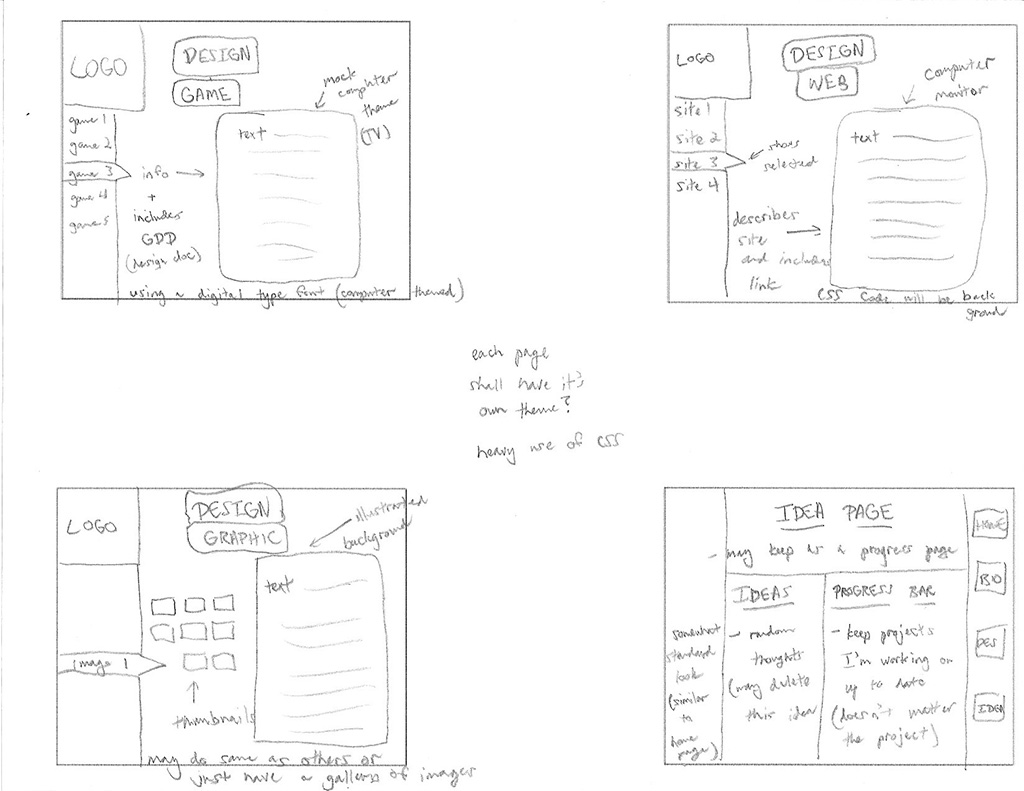 LOGO
DESIGN
GAME
mock
computer
theme
(TV)
game 1
game 2
game 3
game 4
game 5
info
+
includes
GDD
(design doc)
text
using a digital type font (computer themed)
LOGO
DESIGN
WEB
computer
monitor
site 1
site 2
site 3
site 4
shows
selected
text
describes
site
and includes
link
CSS code will be back
ground
each page
shall have it's
own theme?
heavy use of CSS
LOGO
DESIGN
GRAPHIC
illustrated
background
text
image 1
thumbnails
may do same as others or
just have a gallery of images
IDEA PAGE
- may keep as a progress page
somewhat
standard
look
(similar
to
home
page)
IDEAS
- random
thoughts
(may delete
this idea)
PROGRESS BAR
- keep projects
I'm working on
up to date
(doesn't matter
the project)
HOME
BIO
DES
IDEA